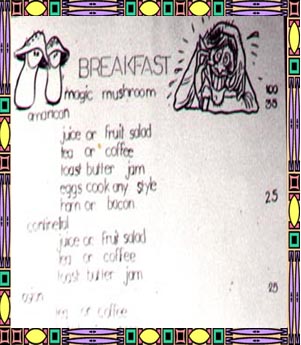 BREAKFAST
magic mushroom 100
38
american
juice or fruit salad
tea or coffee
toast butter jam
eggs cook any style
ham or bacon 25
continetal
juice or fruit salad
tea or coffee
toast butter jam 25
asian
tea or coffee